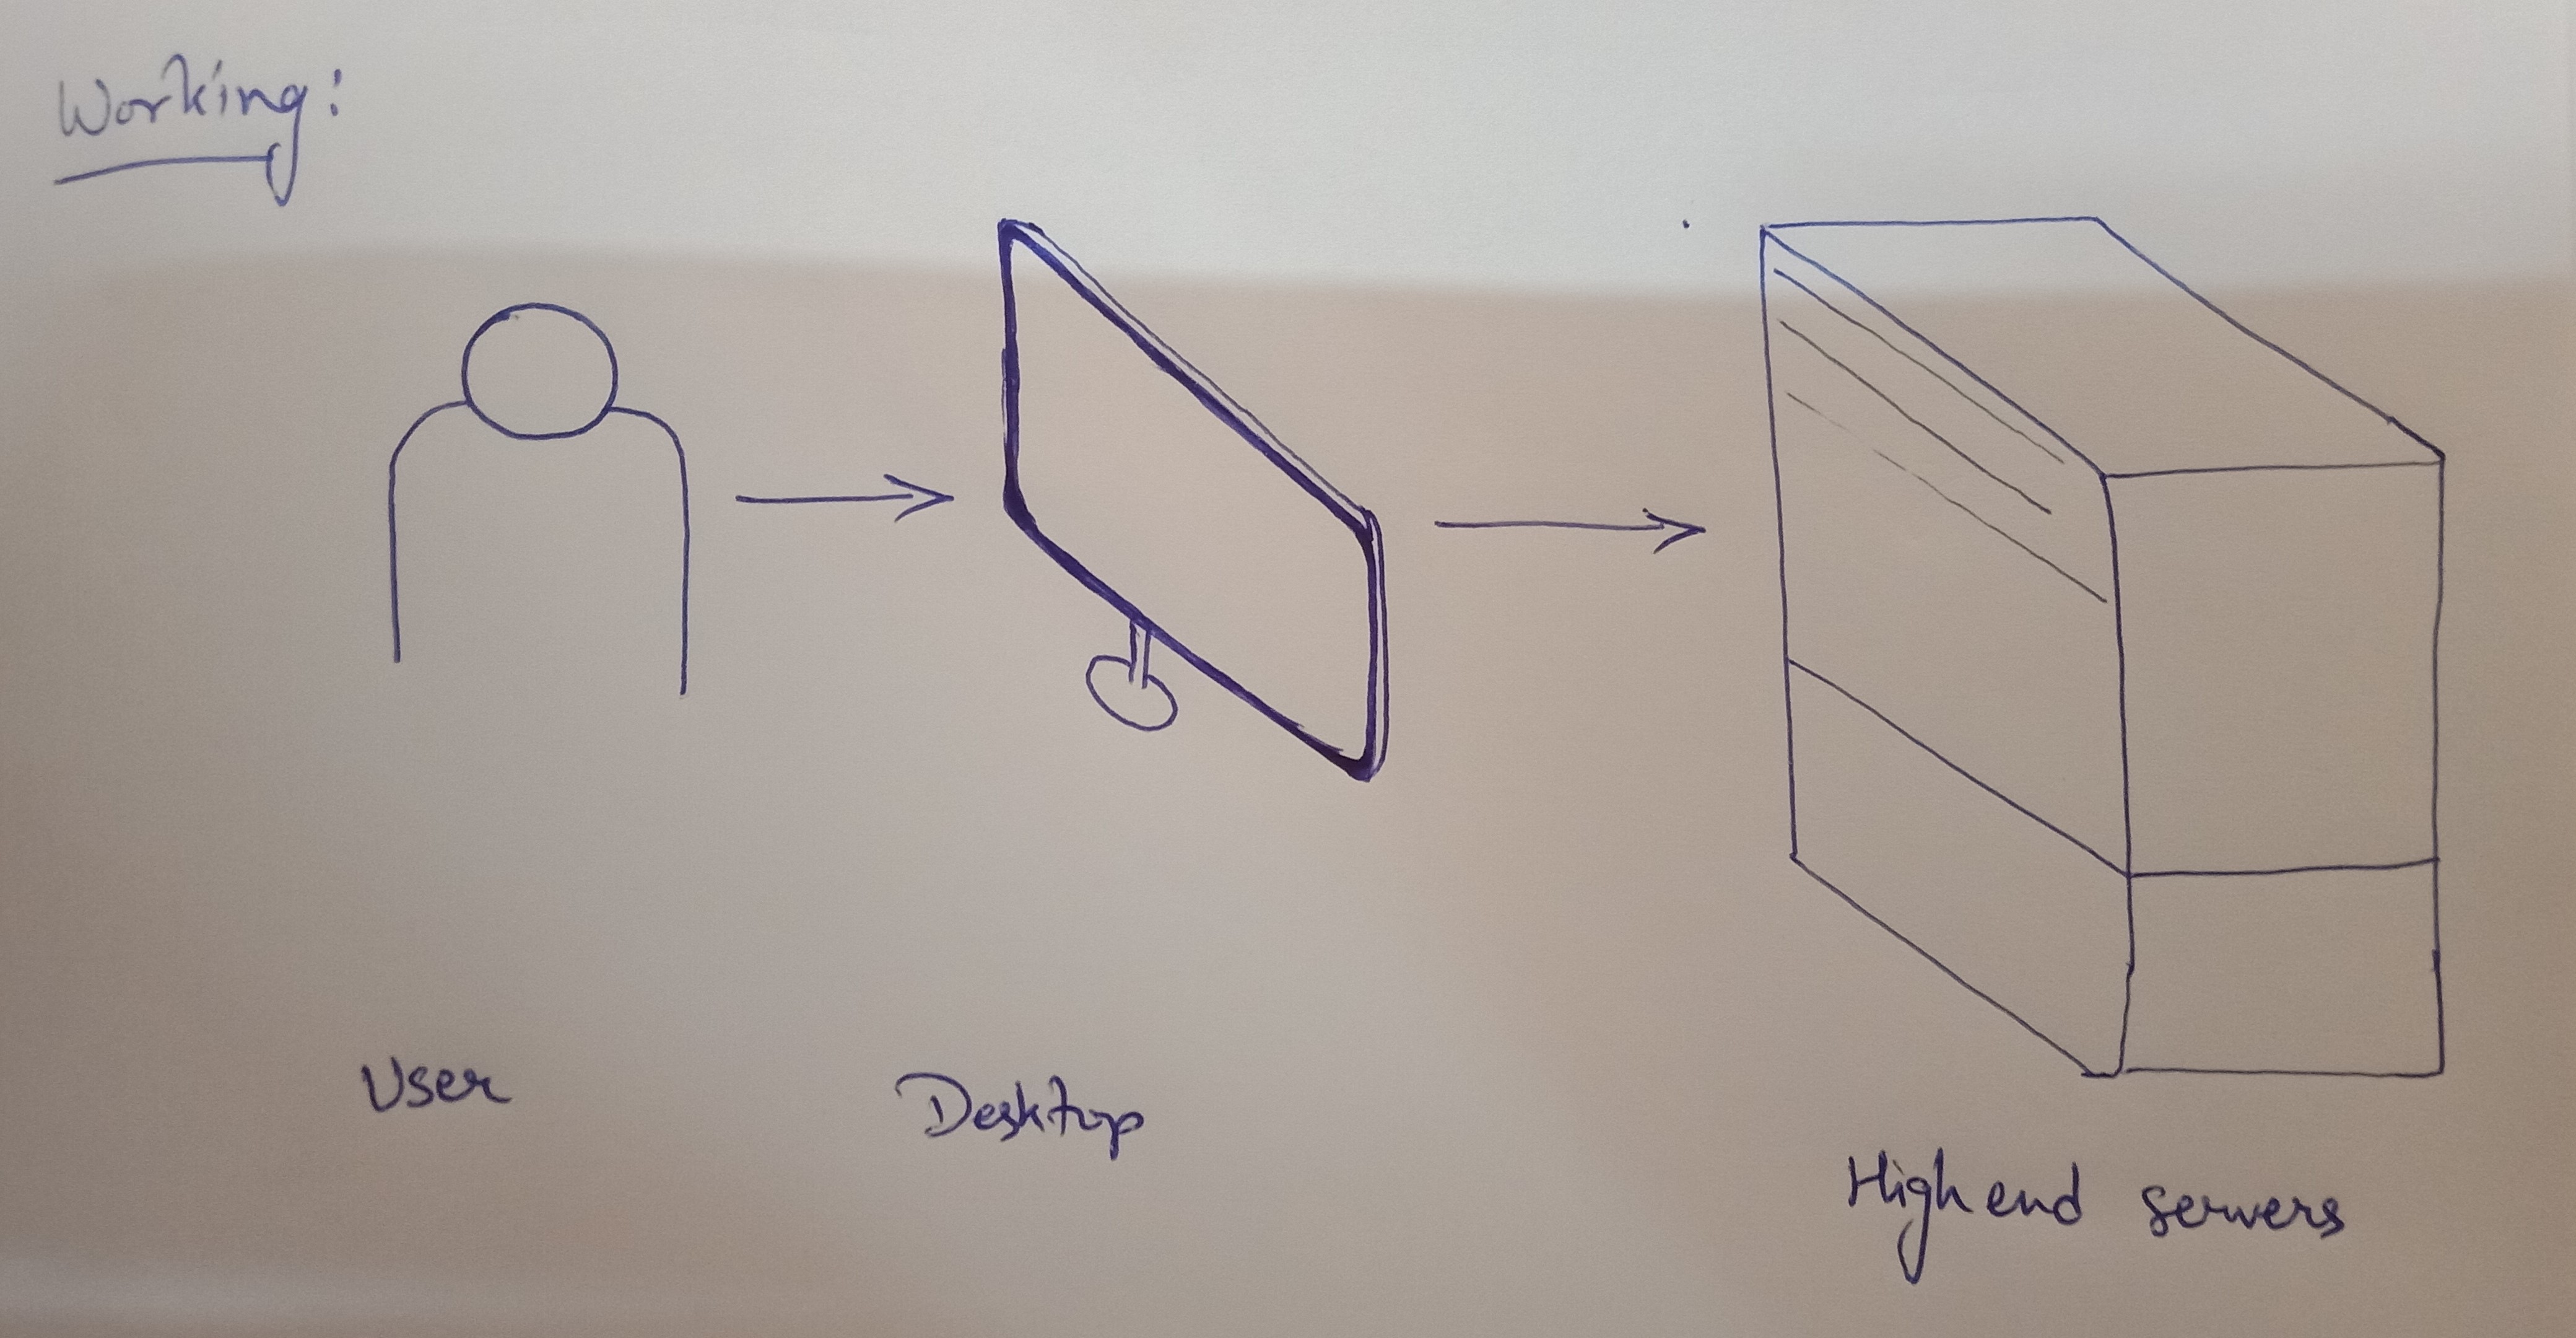 Working:
User
Desktop
High end servers